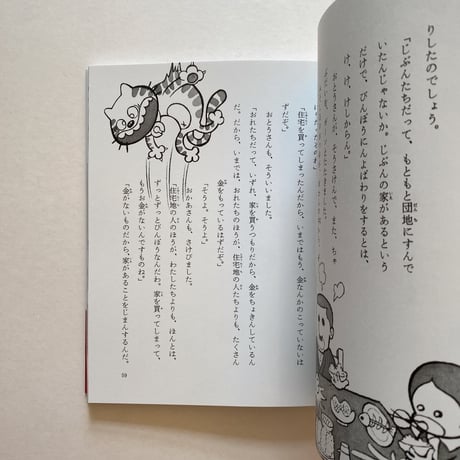 りしたのでしょう。
「じぶんたちだって、もともと団地にすんで
いたんじゃないか。じぶんの家があるという
だけで、びんぼうにんよばわりをするとは、
け、けしからん。」
おとうさんが、そうさけんで、また、ちゃ
おとうさんも、そういいました。
「住宅を買ってしまったんだから、いまではもう、金なんかのこっていないは
ずだぞ。」
「おれたちだって、いずれ、家を買うつもりだから、金をちょきんしているん
だ。だから、いまでは、おれたちのほうが、住宅地の人たちよりも、たくさん
金をもっているはずだぞ。」
「そうよ。そうよ。」
おかあさんも、さけびました。
「住宅地の人のほうが、わたしたちよりも、ほんとは、
ずっとずっとびんぼうなんだわ。家を買ってしまって、
もうお金がないんですものね。」
「金がないものだから、家があることをじまんするんだ。
59